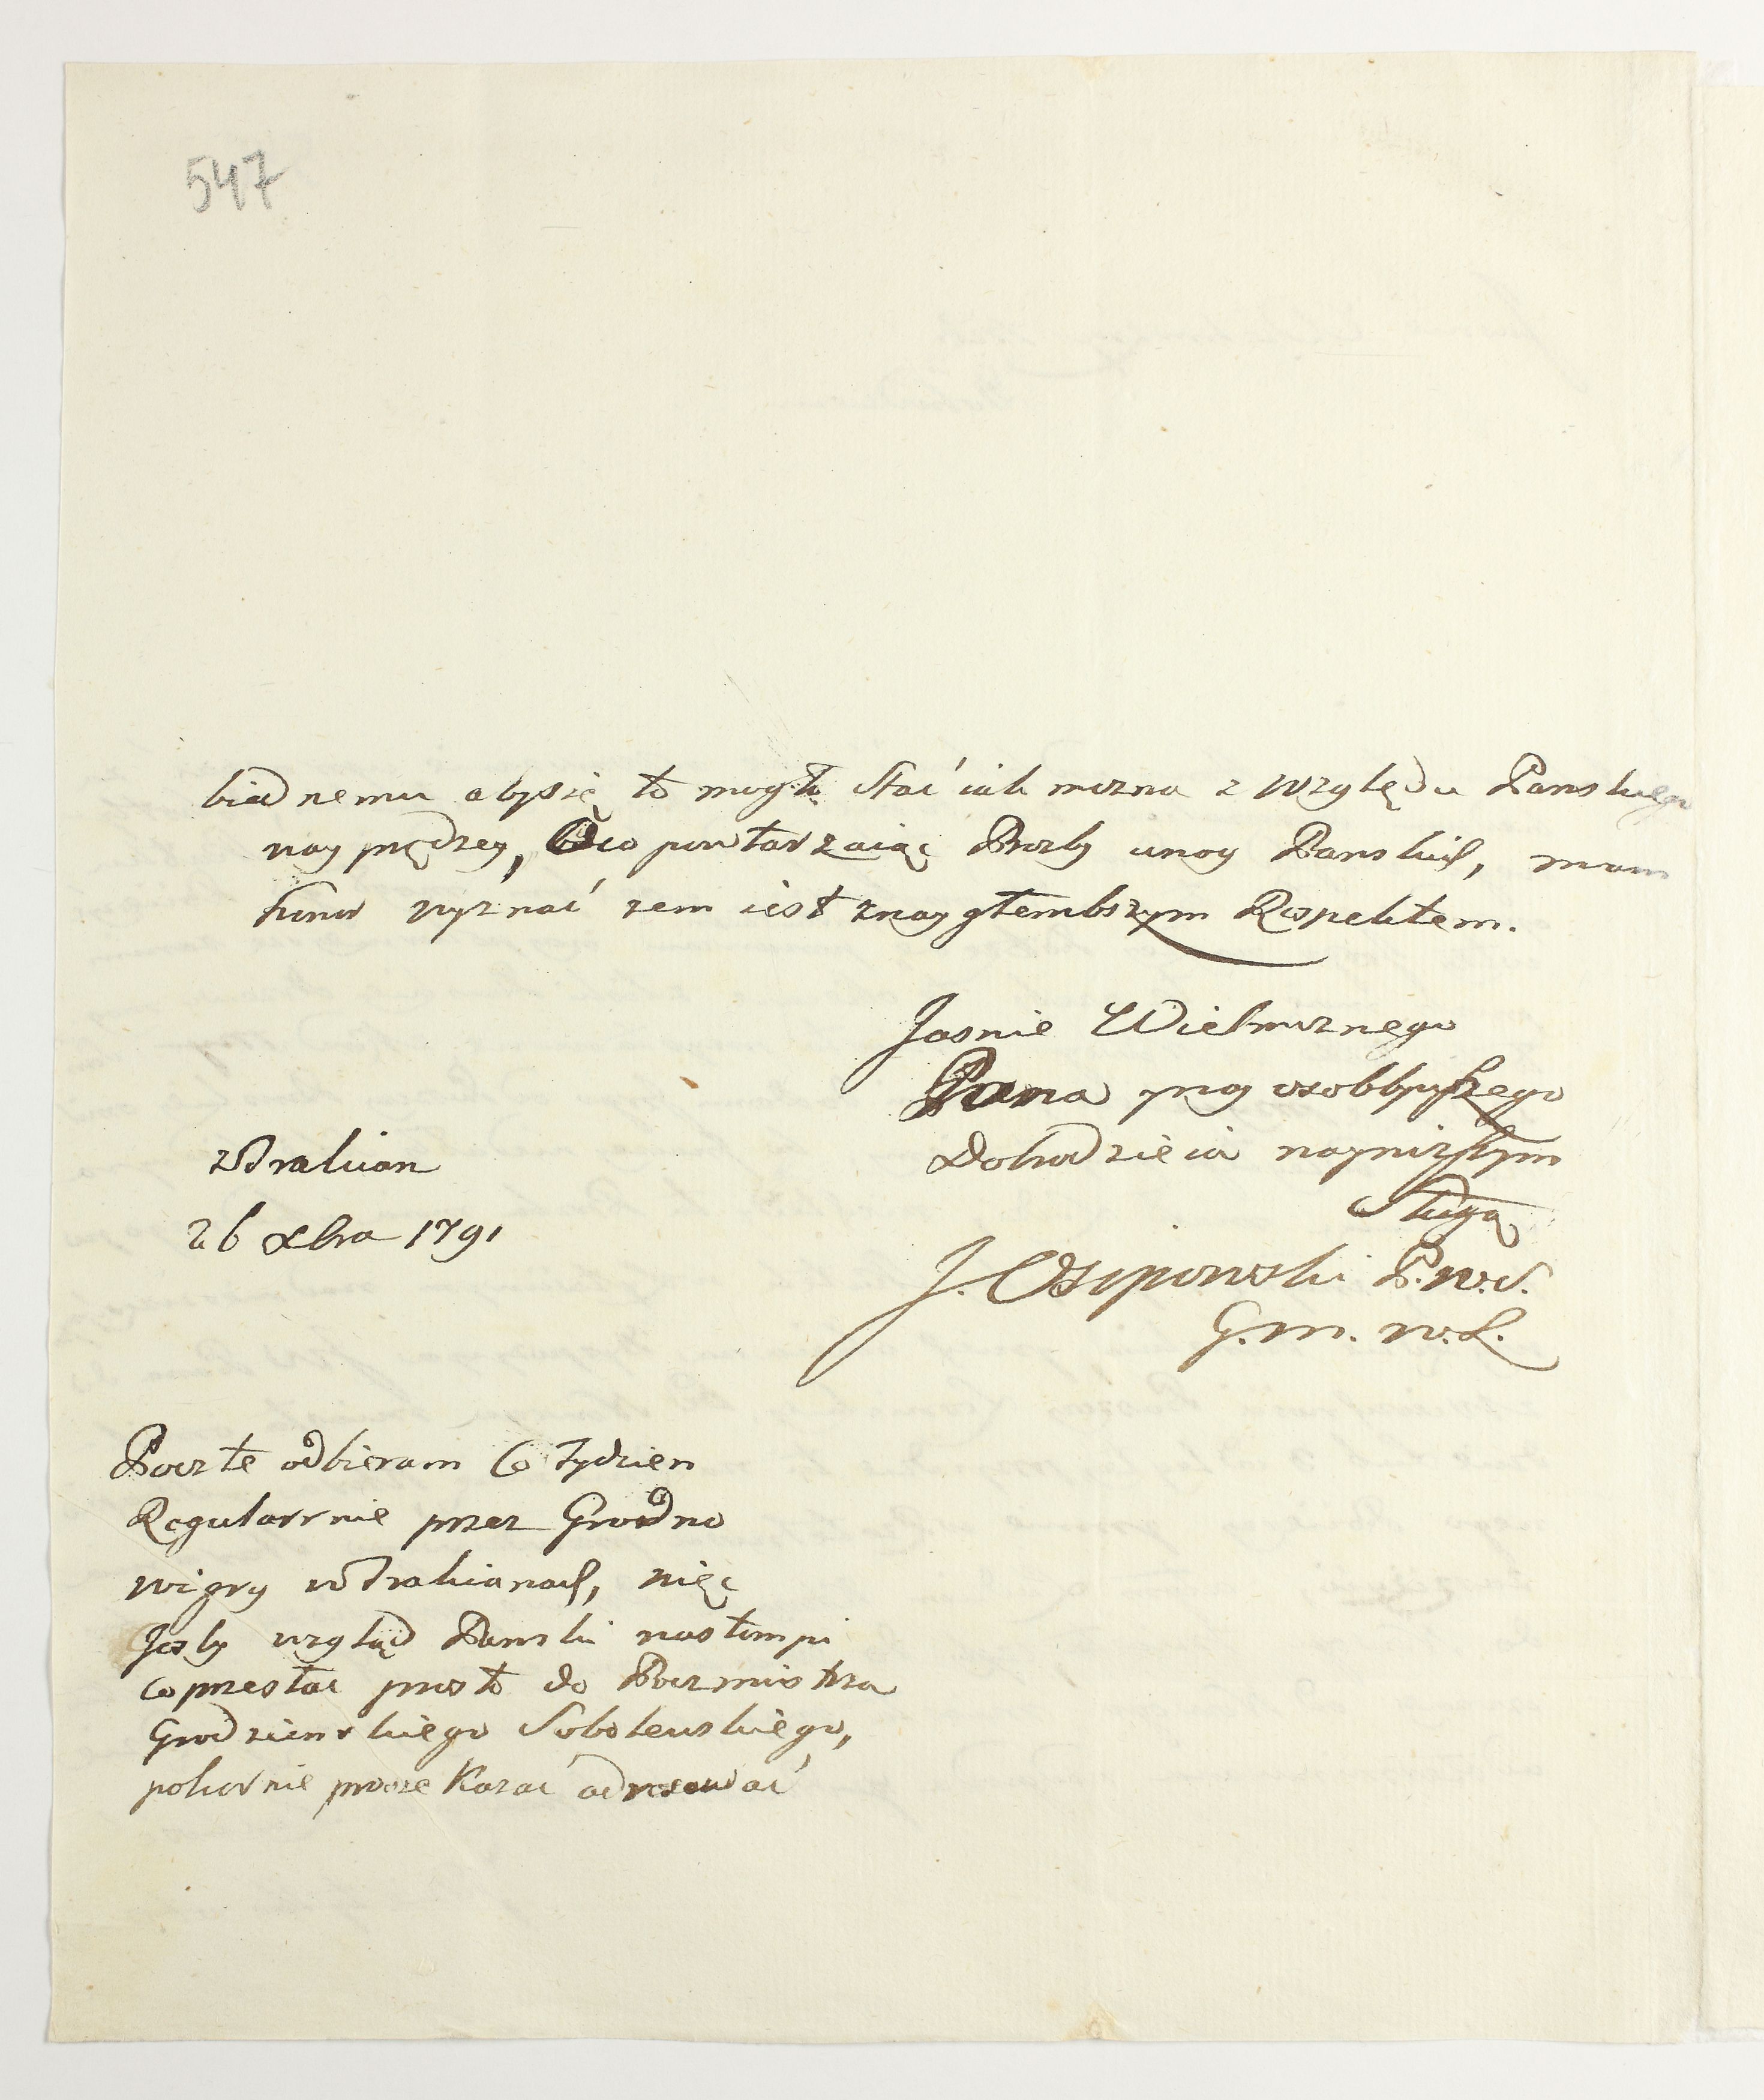 547
biednemu abysię to mogło stać iak mozna z wzylędu Panskiego
nay prędzey, O co powtarzaiąc Prozby unog Panskich, mam
honor wyznać zem iest znaygłembszym Respektem.
Jasnie Wielmoznego
Pana mog osobliwszego
Dobrodzieia naynizszym
Sługą
J. Osipowski P. W. S.
G. M. W. L.
z Trakian
26 Xbra 1791
Pocztę odbieram Co Tydzien
Regularnie przez Grodno
wigry w Trakianach, więc
Jezly wzgląd Panski nastempi
Co przestac prosto do Pocmistrza
Grodzienskiego Sobolewskiego,
pokornie prosze Kazać adresować